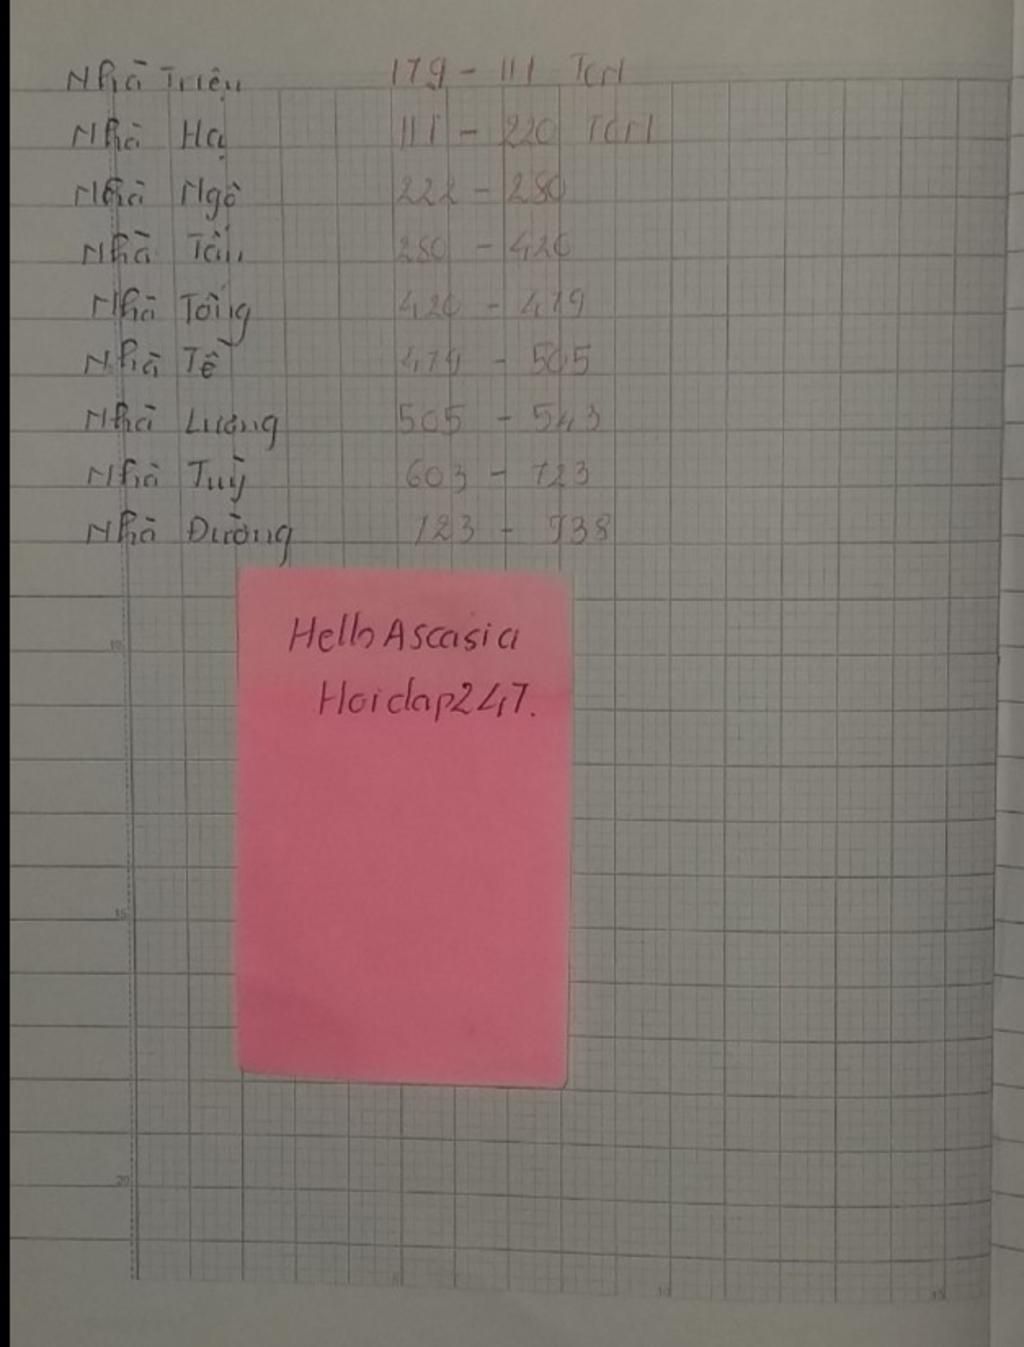 Nhà Triệu 179 - 111 TCN
Nhà Hạ 111 - 220 TCN
Nhà Ngô 222 - 280
Nhà Tấn 280 - 420
Nhà Tống 420 - 479
Nhà Tề 479 - 505
Nhà Lương 505 - 543
Nhà Tuỳ 603 - 723
Nhà Đường 723 - 938
Hello Ascasia
Hoidap247.